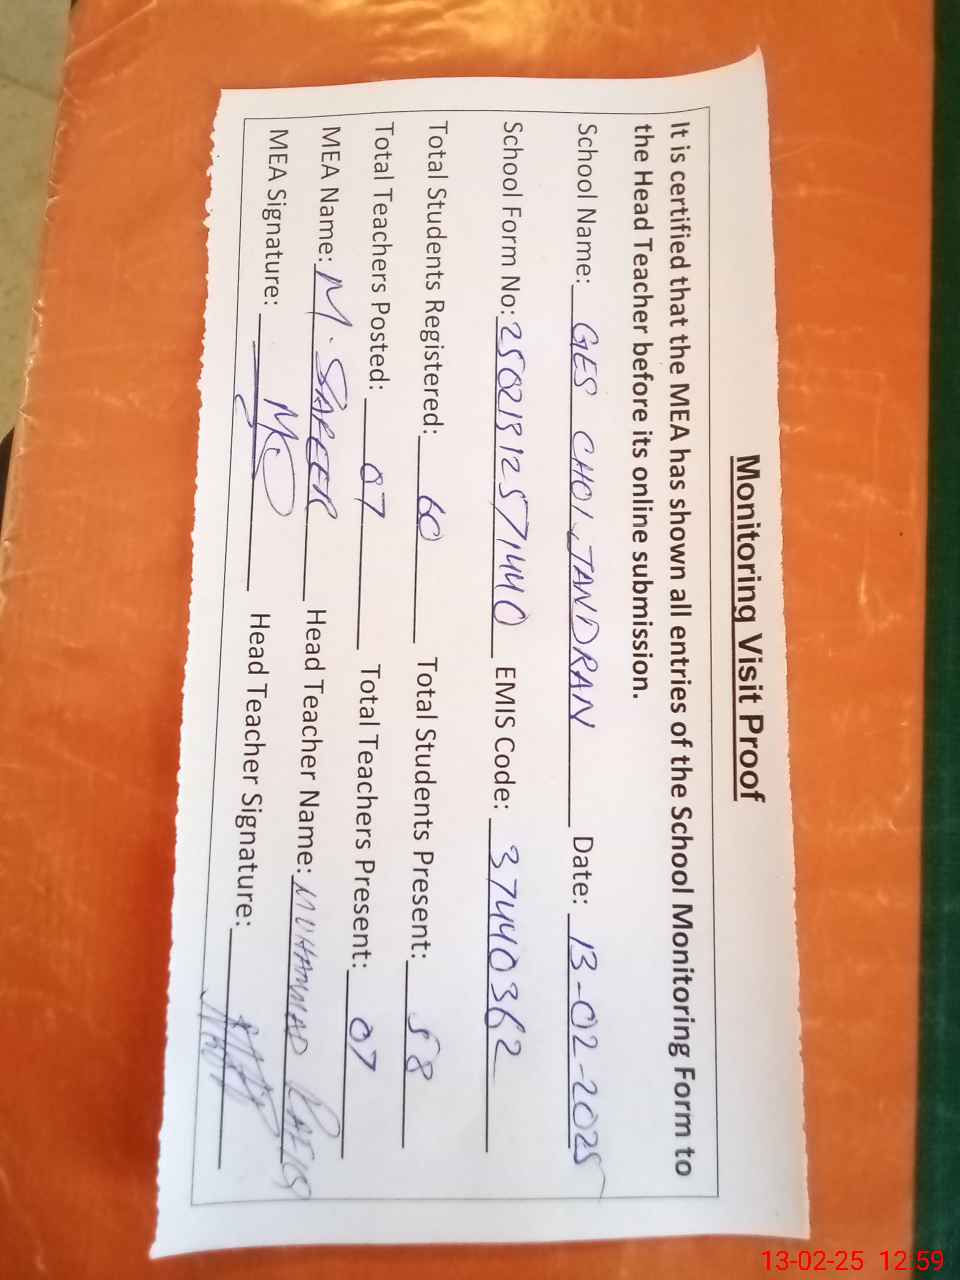 Monitoring Visit Proof
It is certified that the MEA has shown all entries of the School Monitoring Form to
the Head Teacher before its online submission.
School Name: GES CHOI, JANDRAN Date: 13-02-2025
School Form No: 25021312571440 EMIS Code: 37440362
Total Students Registered: 60 Total Students Present: 58
Total Teachers Posted: 07 Total Teachers Present: 07
MEA Name: M. SAFEER Head Teacher Name: MUHAMMAD RAEES
MEA Signature: Head Teacher Signature:
13-02-25 12:59